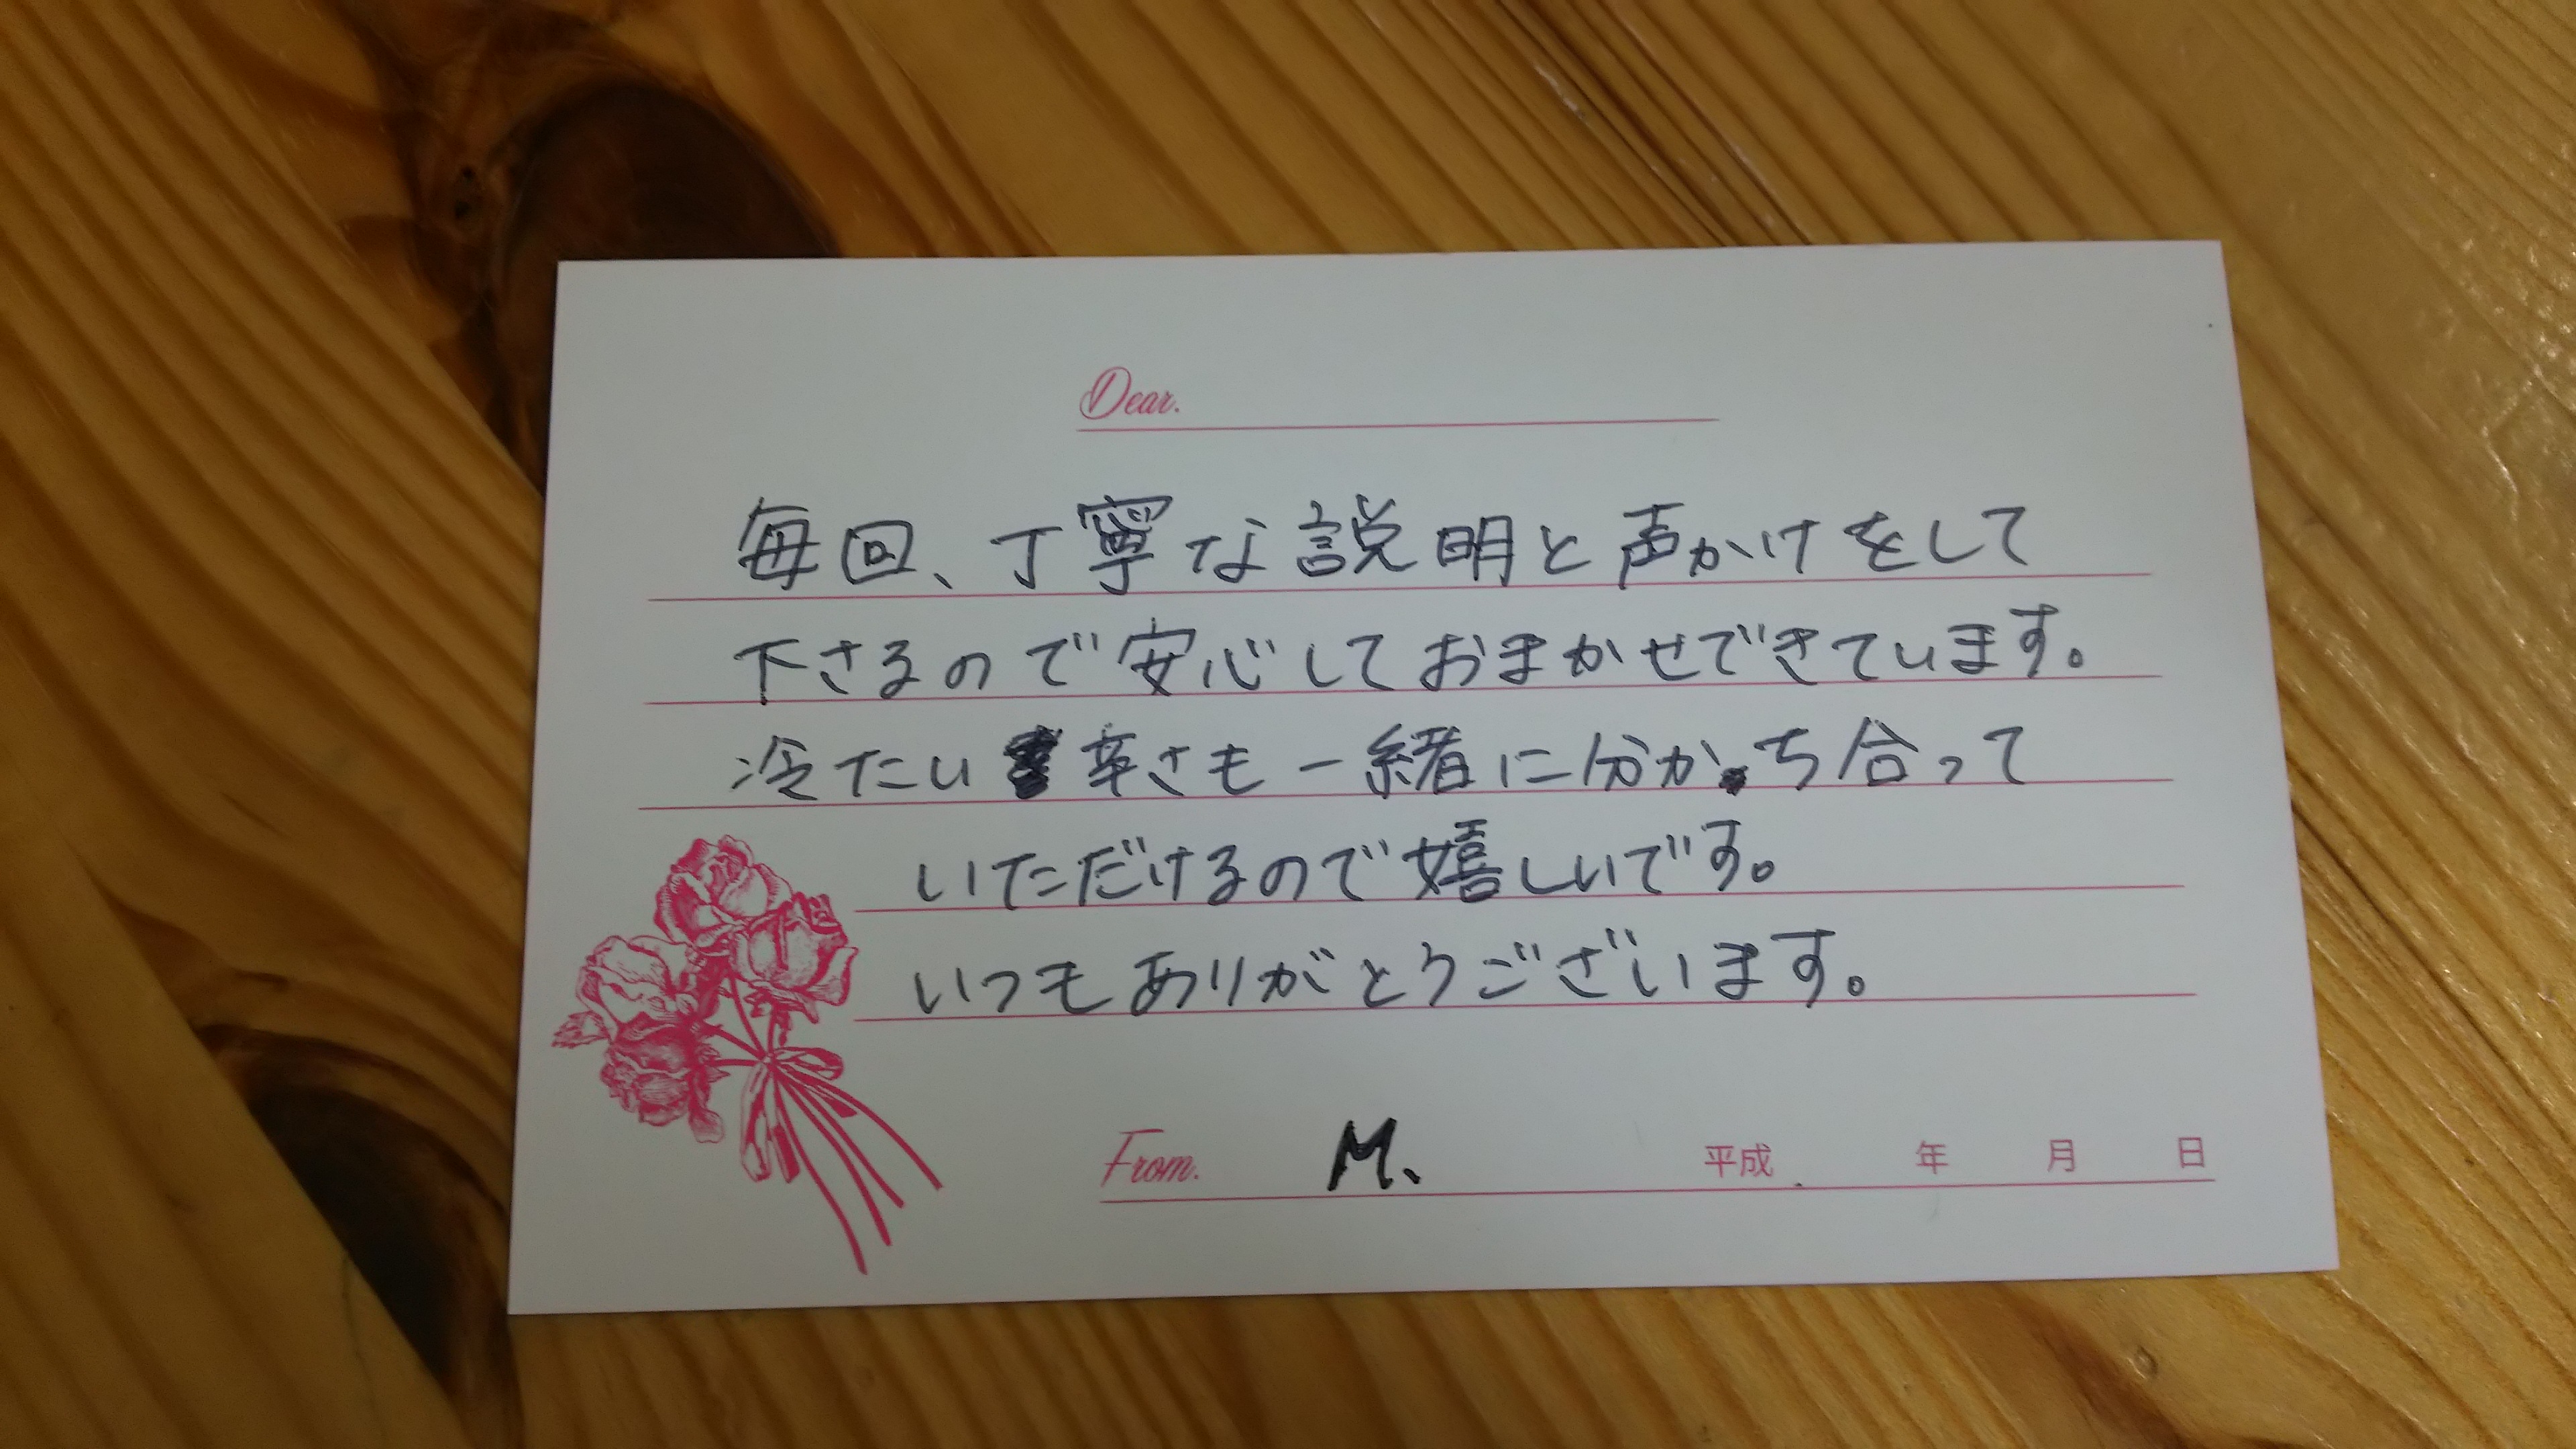 Dear.
毎回、丁寧な説明と声かけをして
下さるので安心しておまかせできています。
冷たい辛さも一緒に分かち合って
いただけるので嬉しいです。
いつもありがとうございます。
From. M. 平成 年 月 日